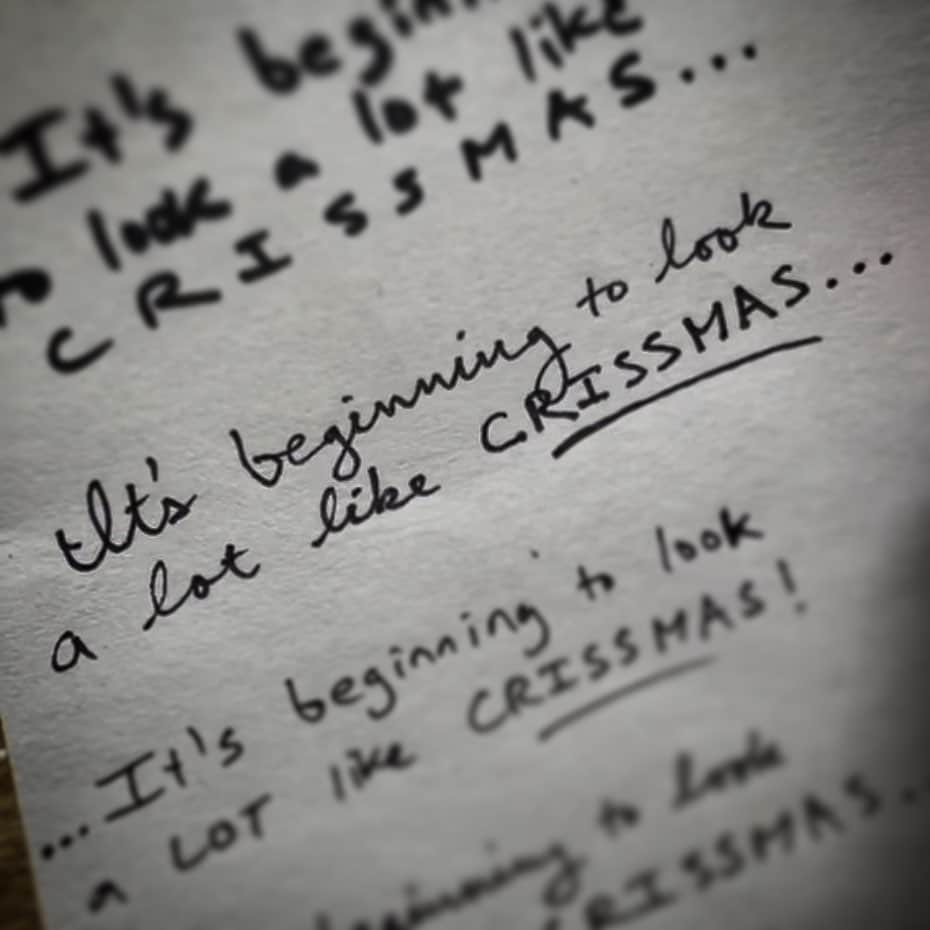 It's beginn
to look a lot like
CRISSMAS...
It's beginning to look
a lot like CRISSMAS...
...It's beginning to look
a LOT like CRISSMAS!
beginning to look
CRISSMAS...